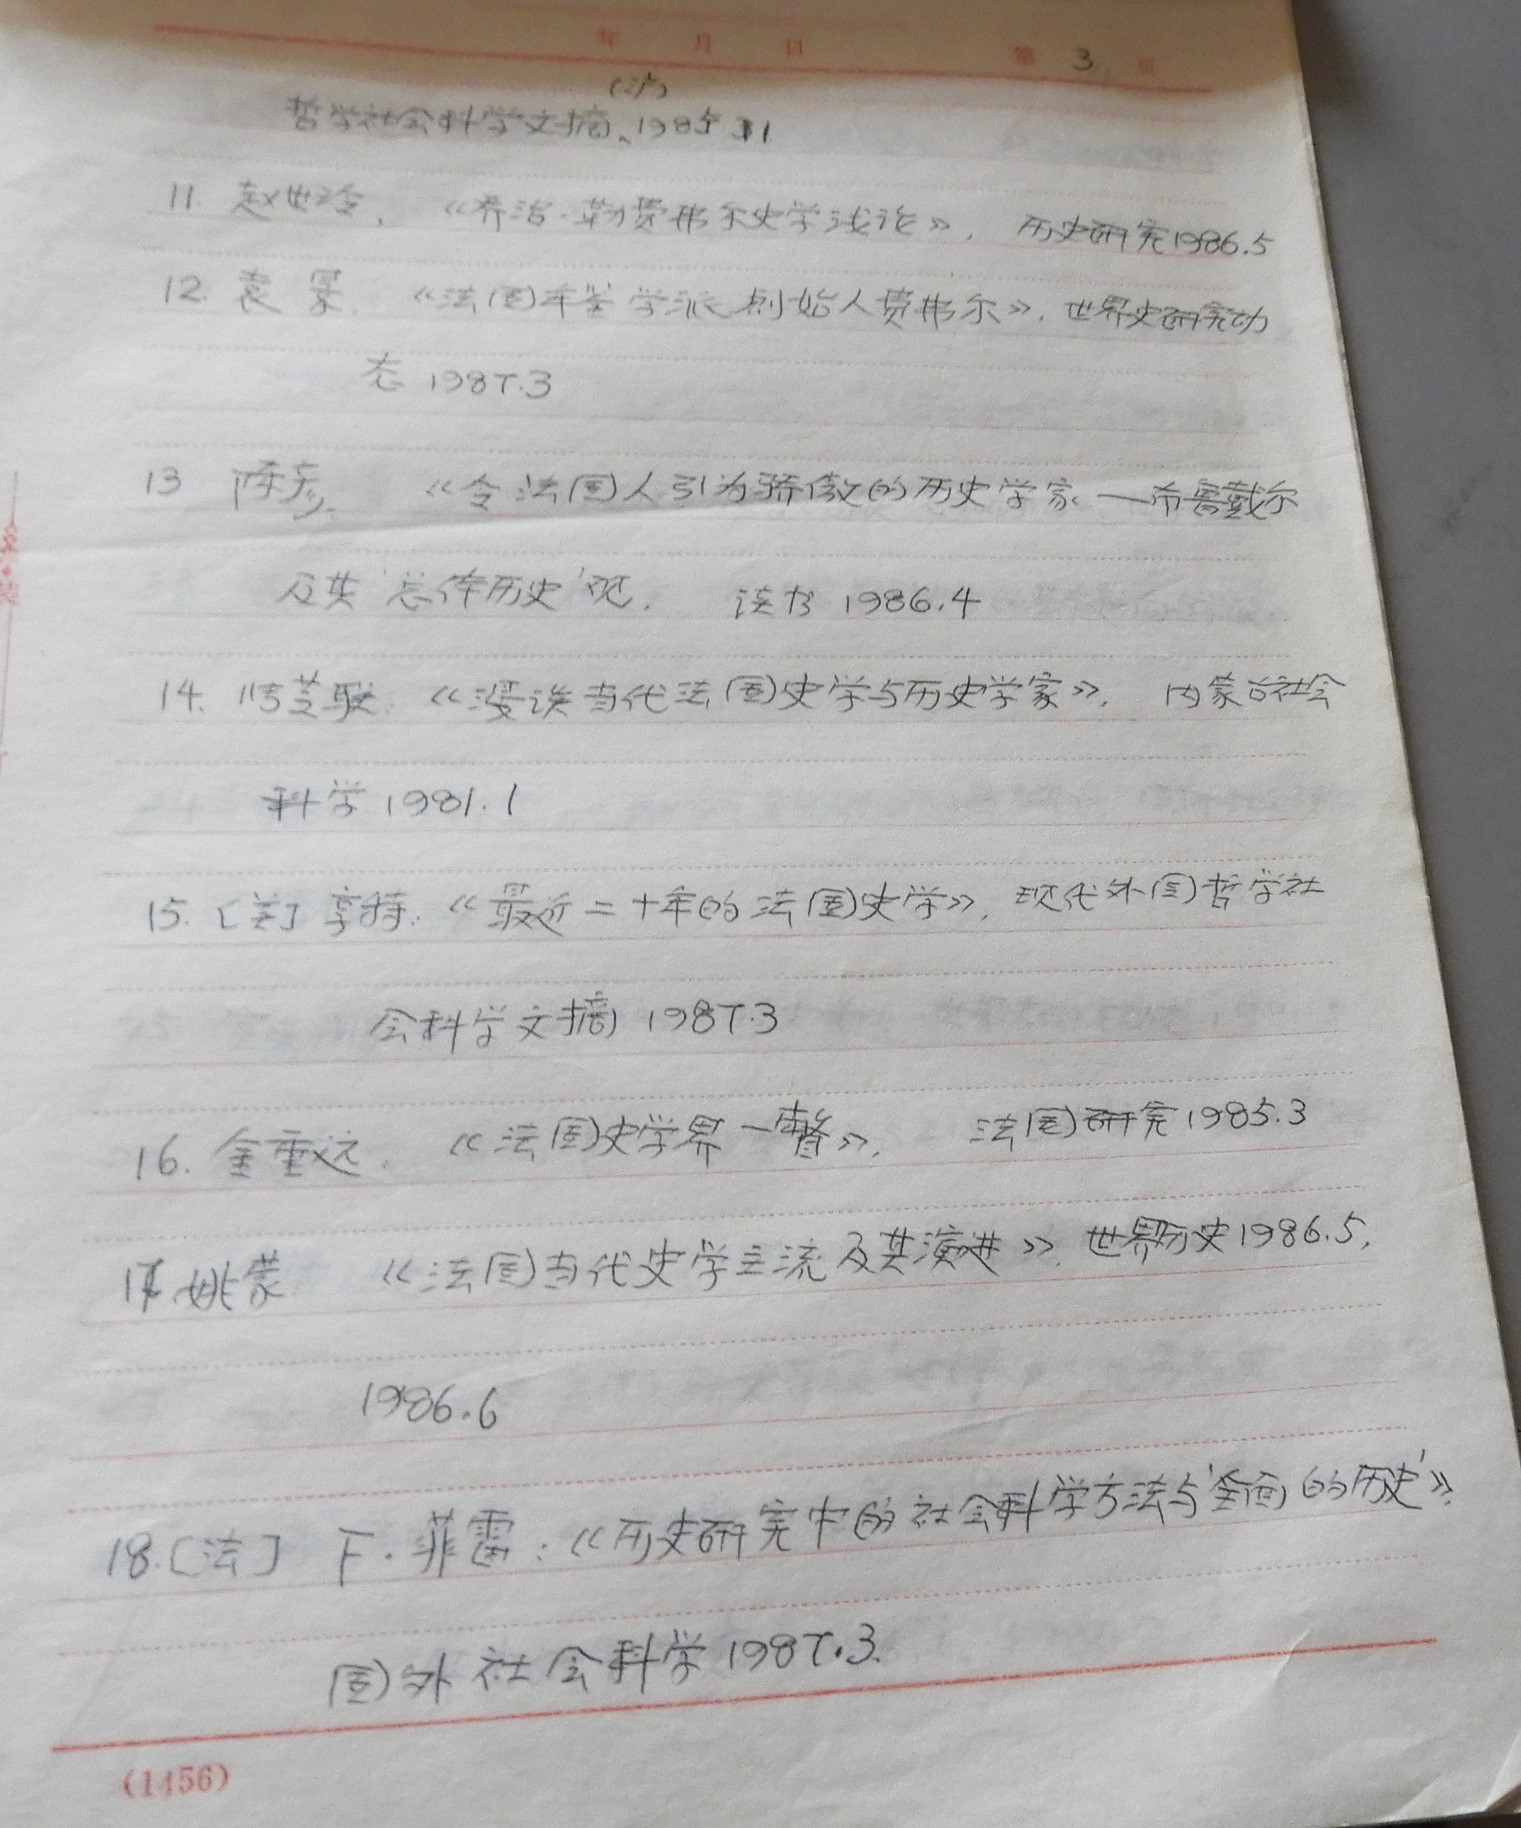 年 月 日 第 3 页
(沪)
哲学社会科学文摘、1985.11
11. 赵世玲. 《乔治·勒费弗尔史学浅论》. 历史研究1986.5
12. 袁 《法国年鉴学派创始人费弗尔》. 世界史研究动
态 1987.3
13 陈彦. 《令法国人引为骄傲的历史学家——布鲁戴尔
及其'总体历史'观. 读书 1986.4
14. 冯芝联. 《漫谈当代法国史学与历史学家》. 内蒙古社会
科学1981.1
15. [美] 亨特: 《最近二十年的法国史学》. 现代外国哲学社
会科学文摘 1987.3
16. 金重远. 《法国史学界一瞥》. 法国研究1985.3
17. 姚蒙. 《法国当代史学主流及其演进》. 世界历史1986.5,
1986.6
18. [法] F·菲雷: 《历史研究中的社会科学方法与'全面的历史'》.
国外社会科学1987.3.
(1456)